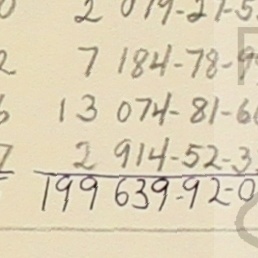 0 2 079-27-5
2 7 184-78-9
6 13 074-81-6
7 2 914-52-3
199 639-92-0